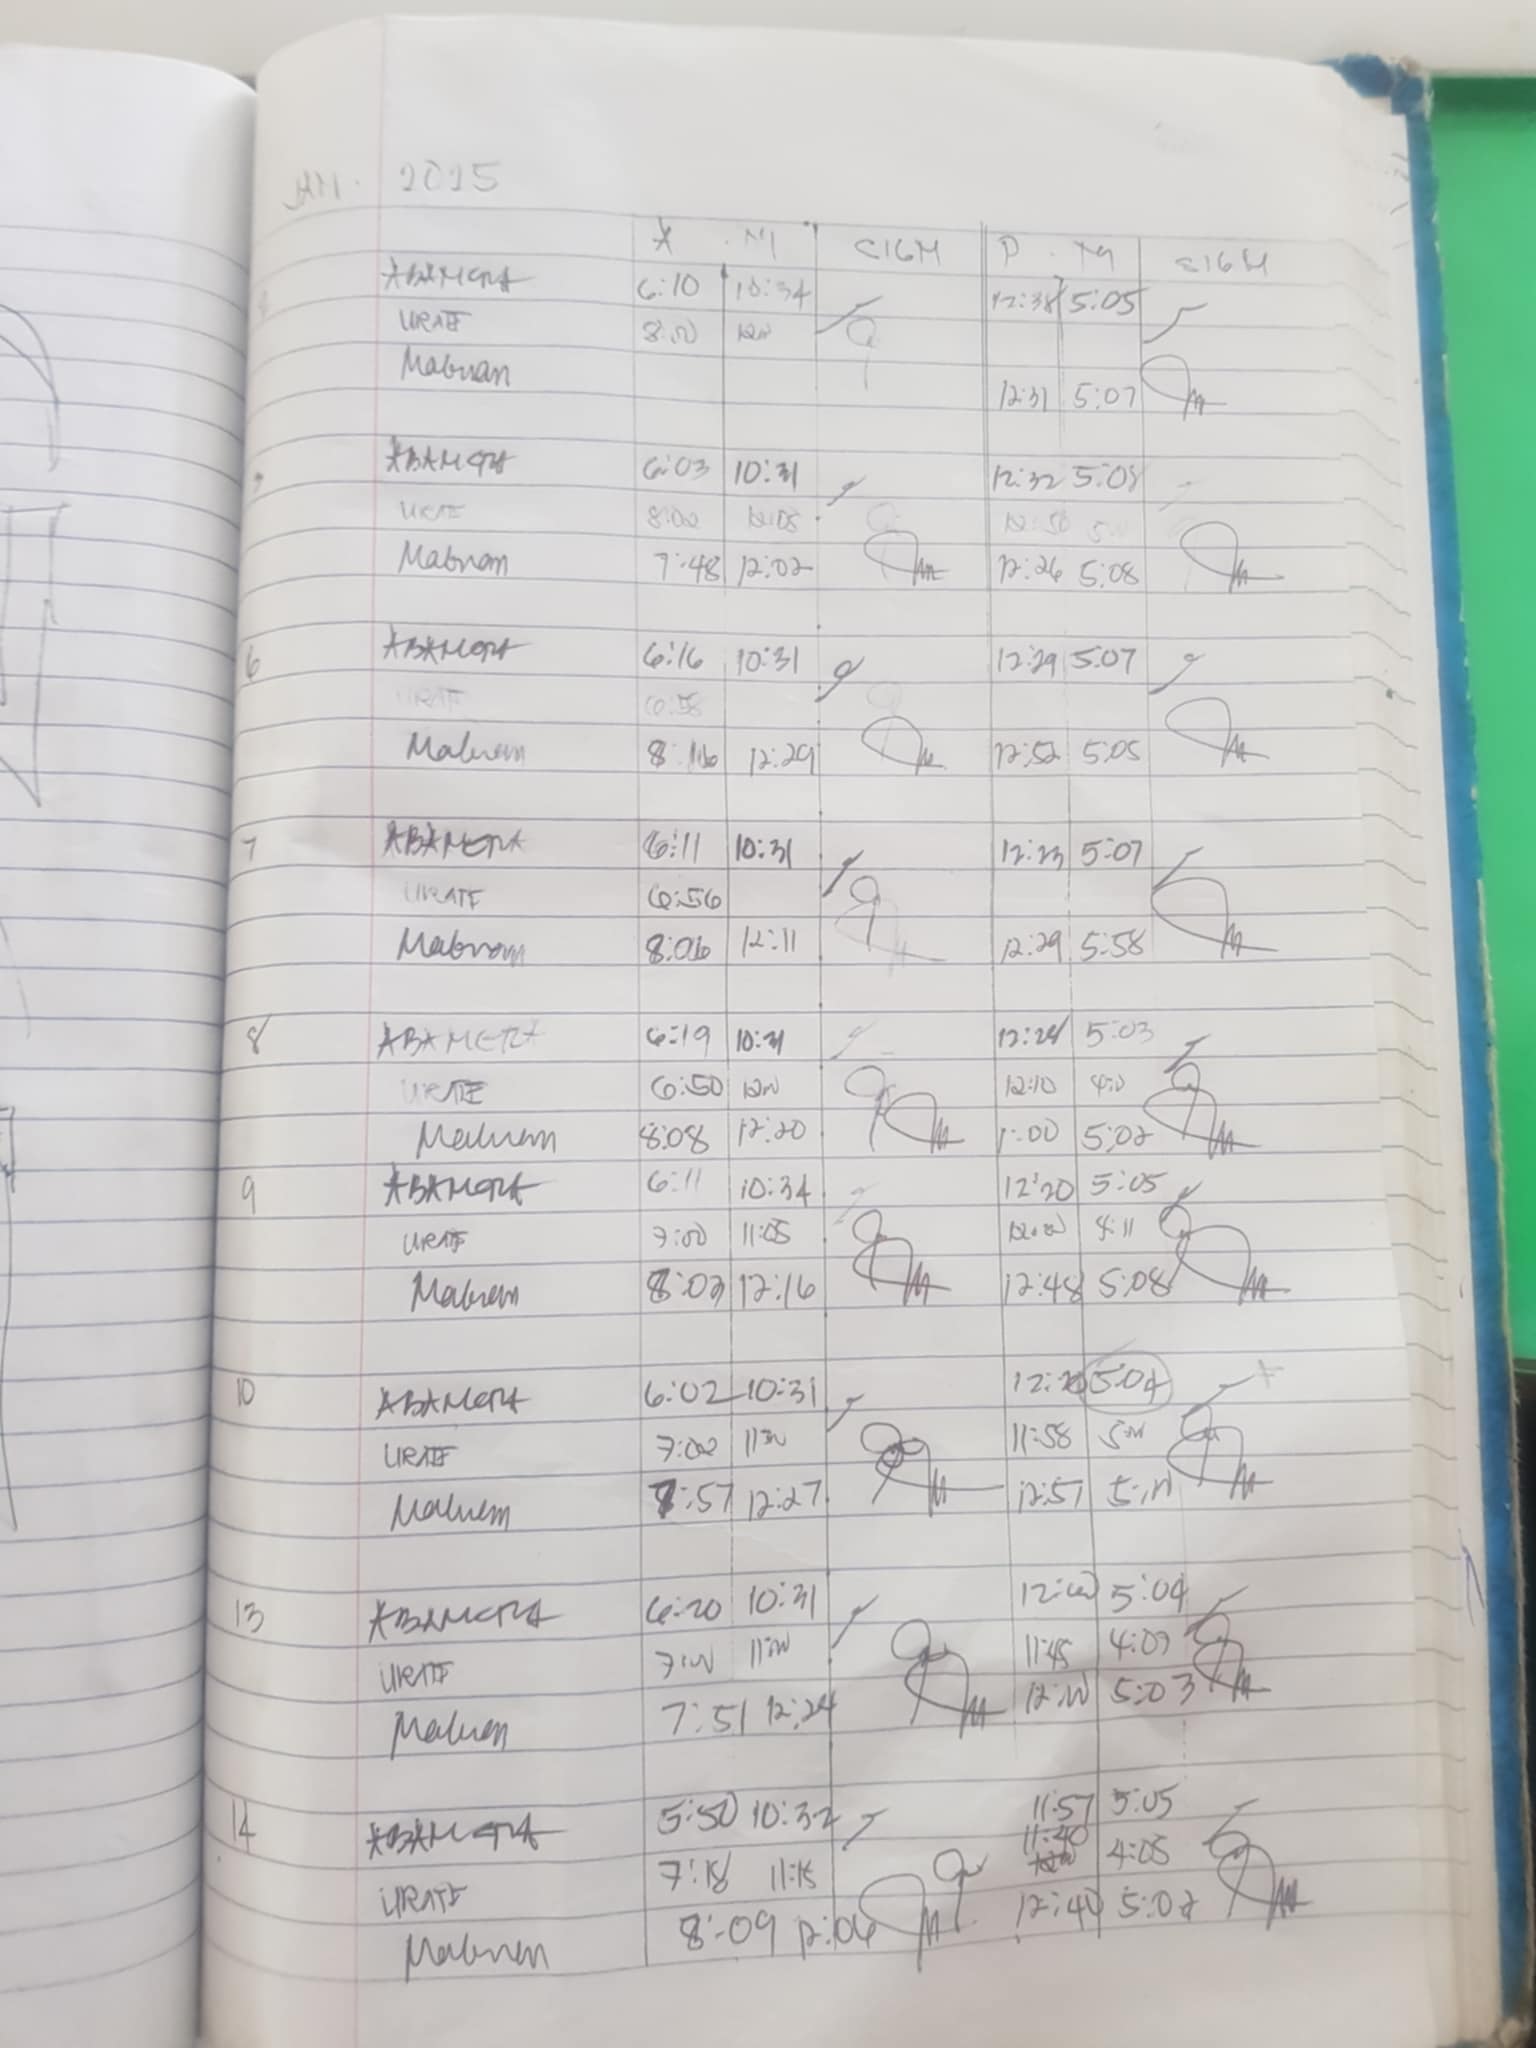 JAN. 2025
A M SIGN P M SIGN
ABAMETA 6:10 10:34 12:38 5:05
URATE 8:00
Mabuan 12:31 5:07
ABAMETA 6:03 10:31 12:32 5:08
URATE 8:00 12:05
Mabuan 7:48 12:02 12:26 5:08
6 ABAMETA 6:16 10:31 12:29 5:07
URATE 6:58
Mabuan 12:29 12:52 5:05
7 ABAMETA 6:11 10:31 12:23 5:07
URATE 6:56
Mabuan 8:06 12:11 12:29 5:58
8 ABAMETA 6:19 10:31 12:24 5:03
URATE 6:50 12:10
Mabuan 8:08 12:20 1:00 5:02
9 ABAMETA 6:11 10:34 12:20 5:05
URATE 7:00 11:05 4:11
Mabuan 8:02 12:16 12:48 5:08
10 ABAMETA 6:02 10:31 5:04
URATE 7:00 11:58
Mabuan 7:57 12:27 12:57
13 ABAMETA 6:20 10:31 5:04
URATE 7:00 11:00 11:45 4:09
Mabuan 7:51 12:24 5:03
14 ABAMETA 5:50 10:32 11:57 5:05
URATE 7:18 11:15 11:40 4:05
Mabuan 8:09 12:06 12:40 5:02